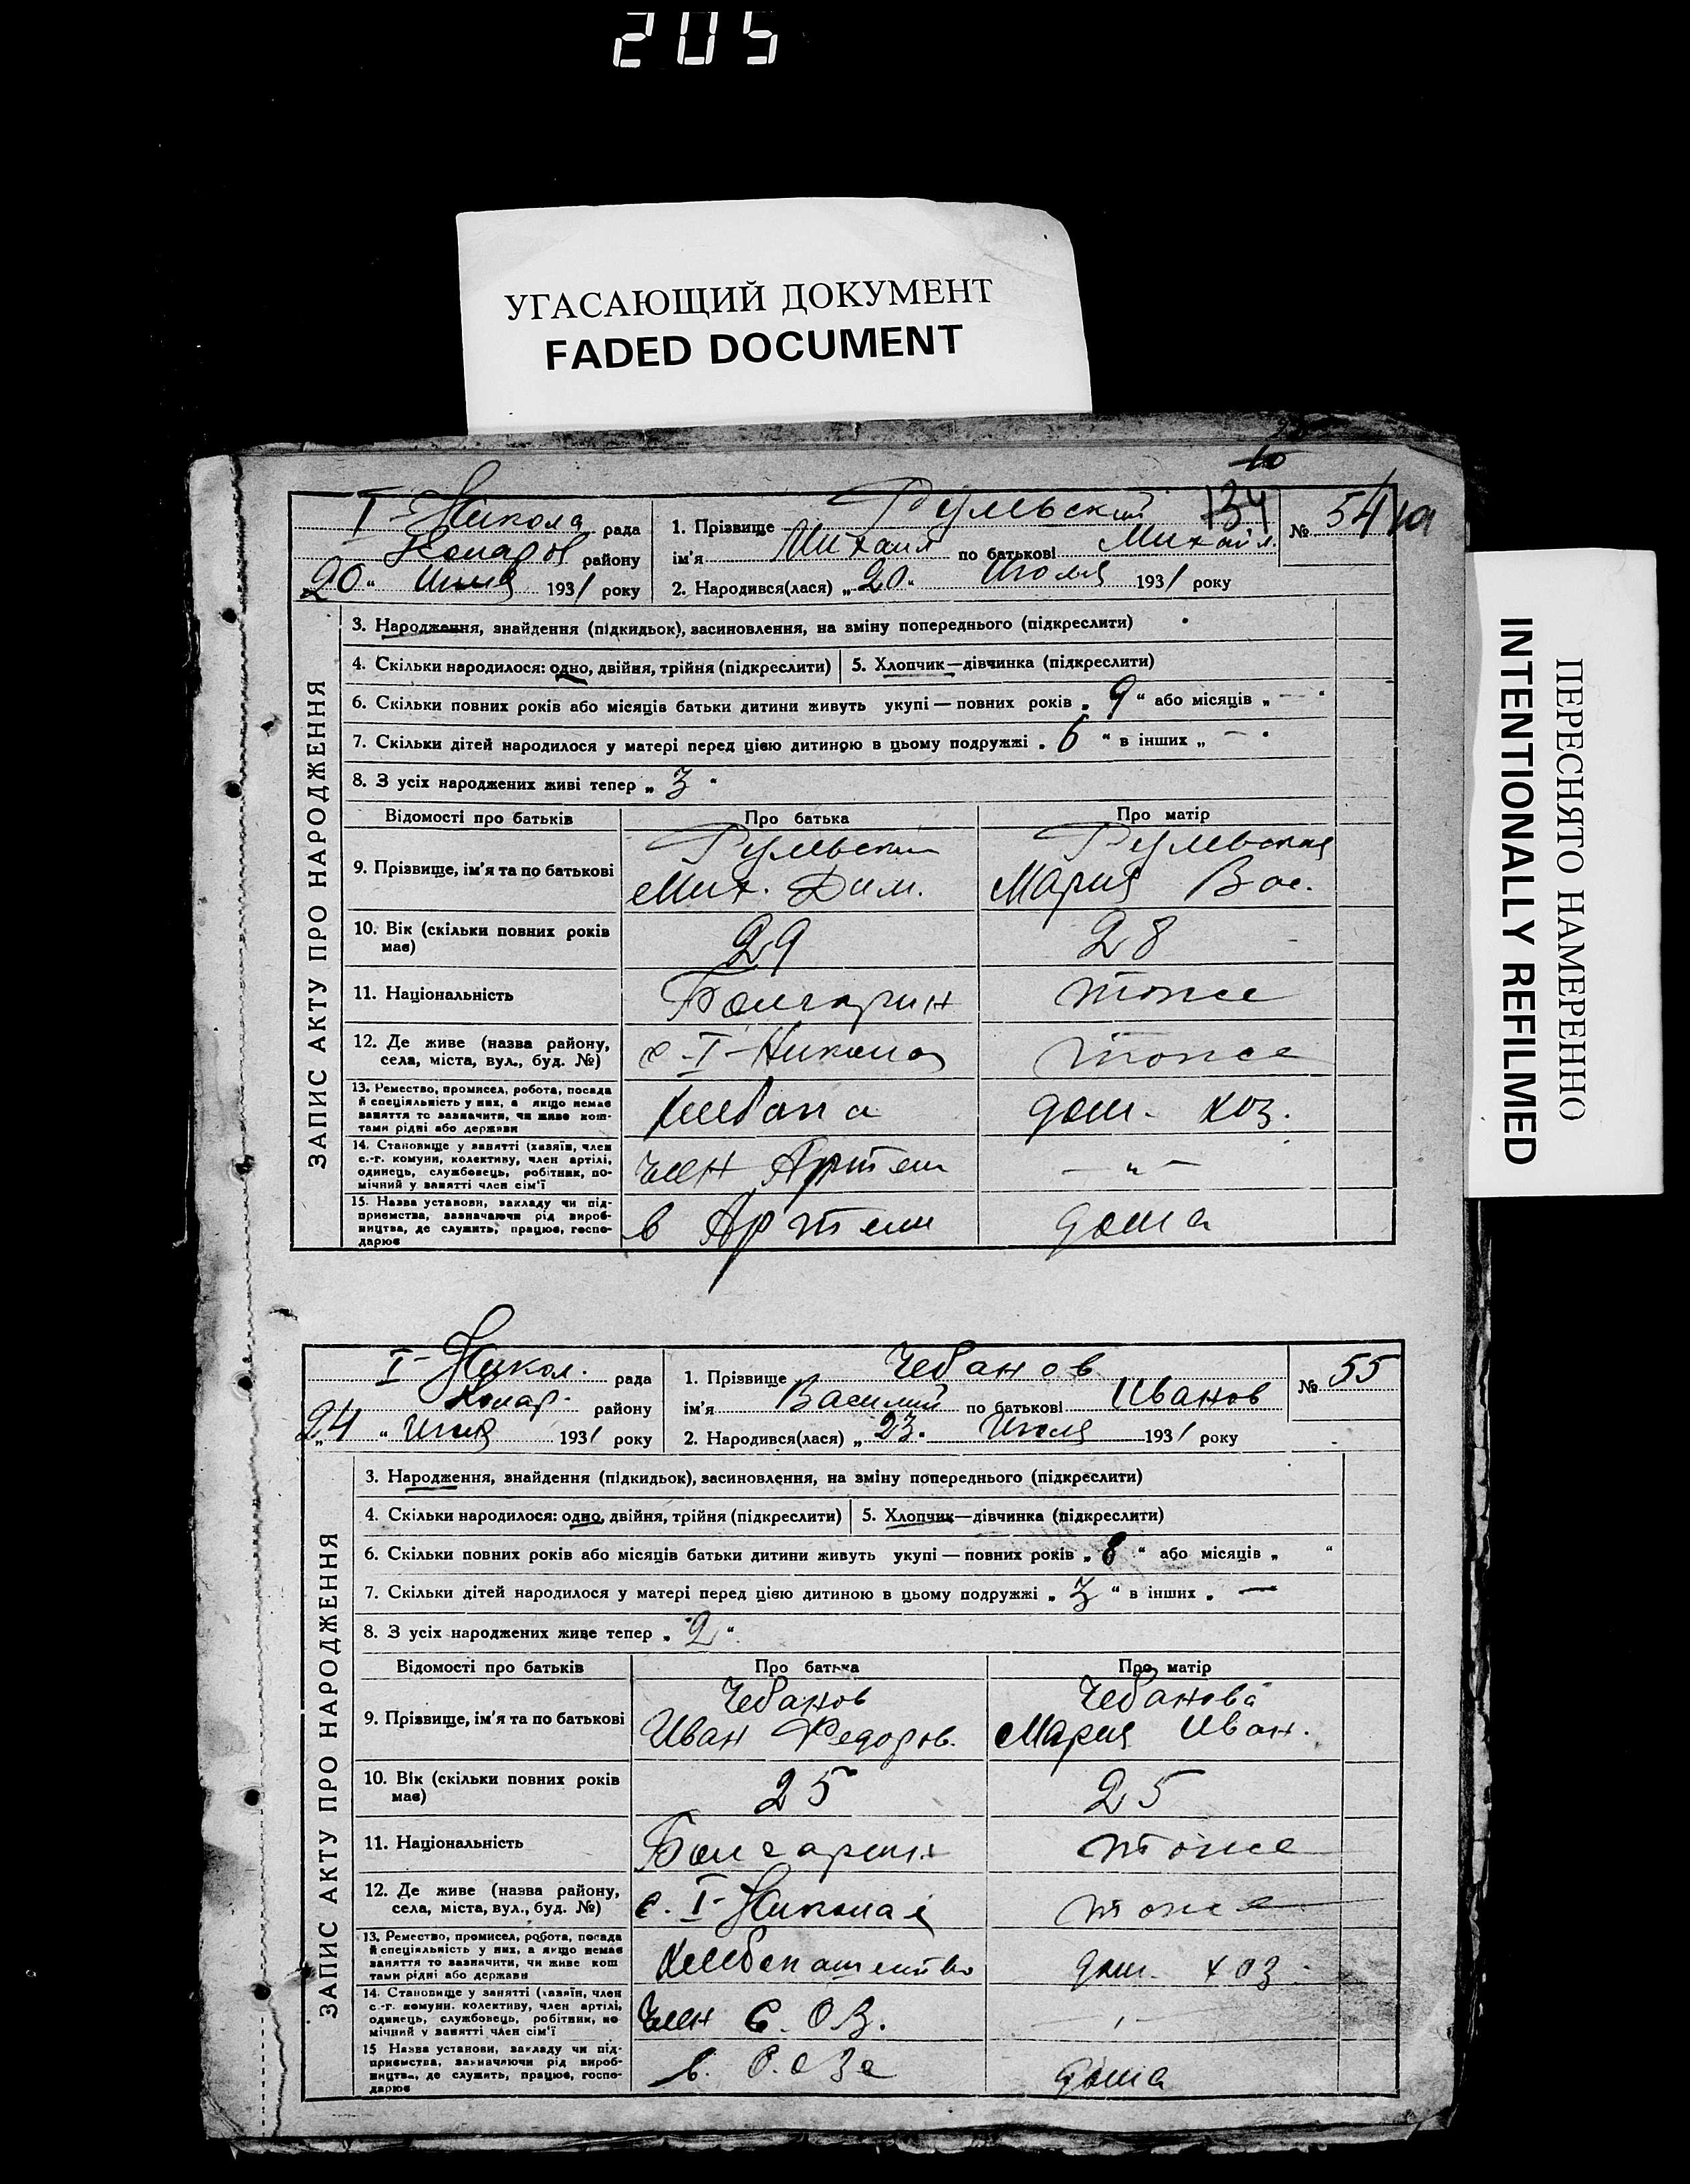 205
УГАСАЮЩИЙ ДОКУМЕНТ
FADED DOCUMENT
ПЕРЕСНЯТО НАМЕРЕННО
INTENTIONALLY REFILMED
134
ЗАПИС АКТУ ПРО НАРОДЖЕННЯ
І-Никола рада
район
20 " Июля 1931 року
1. Прізвище Рульский
№ 54
ім'я Михаил по батькові Михайл.
2. Народився(лася) „ 20 " Июля 1931 року
3. Народження, знайдення (підкидьок), засиновлення, на зміну попереднього (підкреслити)
4. Скільки народилося: одно, двійня, трійня (підкреслити) 5. Хлопчик—дівчинка (підкреслити)
6. Скільки повних років або місяців батьки дитини живуть укупі — повних років „ 9 " або місяців „ — "
7. Скільки дітей народилося у матері перед цією дитиною в цьому подружжі „ 6 " в інших „ — "
8. З усіх народжених живі тепер „ 3 "
Відомості про батьків Про батька Про матір
9. Прізвище, ім'я та по батькові Рульский Мих. Дим. Рульская Мария Вас.
10. Вік (скільки повних років має) 29 28
11. Національність Болгарин тоже
12. Де живе (назва району, села, міста, вул., буд. №) с. І-Никола тоже
13. Ремество, промисел, робота, посада й спеціяльність у них, а якщо немає заняття то зазначити, чи живе коштами рідні або держави дом. хоз.
14. Становище у занятті (хазяїн, член с.-г. комуни, колективу, член артілі, одинець, службовець, робітник, помічний у занятті член сім'ї член Артели — " —
15. Назва установи, закладу чи підприємства, зазначаючи рід виробництва, де служить, працює, господарює в Артели дома
ЗАПИС АКТУ ПРО НАРОДЖЕННЯ
І-Никол. рада
Комар. району
„ 24 " Июля 1931 року
1. Прізвище Чебанов
№ 55
ім'я Василий по батькові Иванов
2. Народився(лася) „ 23 " Июля 1931 року
3. Народження, знайдення (підкидьок), засиновлення, на зміну попереднього (підкреслити)
4. Скільки народилося: одно, двійня, трійня (підкреслити) 5. Хлопчик—дівчинка (підкреслити)
6. Скільки повних років або місяців батьки дитини живуть укупі — повних років „ 8 " або місяців „ "
7. Скільки дітей народилося у матері перед цією дитиною в цьому подружжі „ 3 " в інших „ —
8. З усіх народжених живе тепер „ 2 "
Відомості про батьків Про батька Про матір
9. Прізвище, ім'я та по батькові Чебанов Иван Федоров. Чебанова Мария Иван.
10. Вік (скільки повних років має) 25 25
11. Національність Болгарин тоже
12. Де живе (назва району, села, міста, вул., буд. №) с. І-Никола тоже
13. Ремество, промисел, робота, посада й спеціяльність у них, а якщо немає заняття то зазначити, чи живе коштами рідні або держави дом. хоз.
14. Становище у занятті (хазяїн, член с.-г. комуни, колективу, член артілі, одинець, службовець, робітник, помічний у занятті член сім'ї член С.О.З.
15 Назва установи, закладу чи підприємства, зазначаючи рід виробництва, де служить, працює, господарює дома